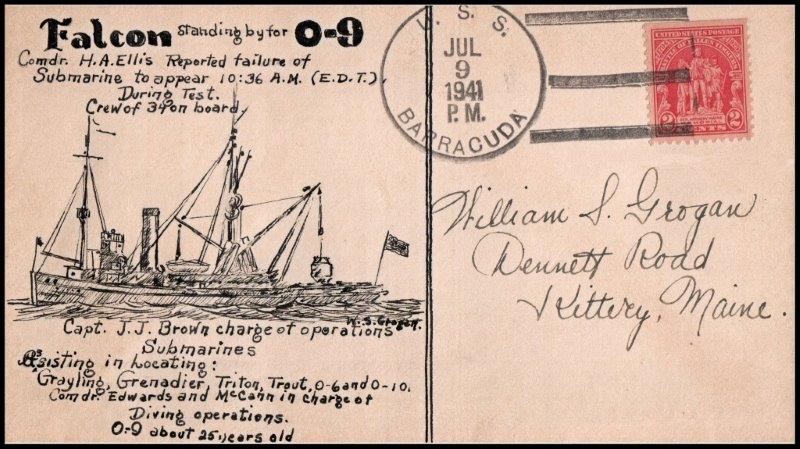 Falcon standing by for O-9
Comdr. H.A. Ellis Reported failure of
Submarine to appear 10:36 A.M. (E.D.T.),
During Test.
Crew of 34 on board,
W.S. Grogan.
Capt. J.J. Brown charge of operations
Submarines
Assisting in Locating:
Grayling, Grenadier, Triton, Trout, O-6 and O-10.
Comdr. Edwards and McCann in charge of
Diving operations.
O-9 about 25 years old
U.S.S.
JUL
9
1941
P.M.
BARRACUDA
UNITED STATES POSTAGE
BATTLE OF FALLEN TIMBERS
2 CENTS 2
William S. Grogan
Dennett Road
Kittery, Maine.